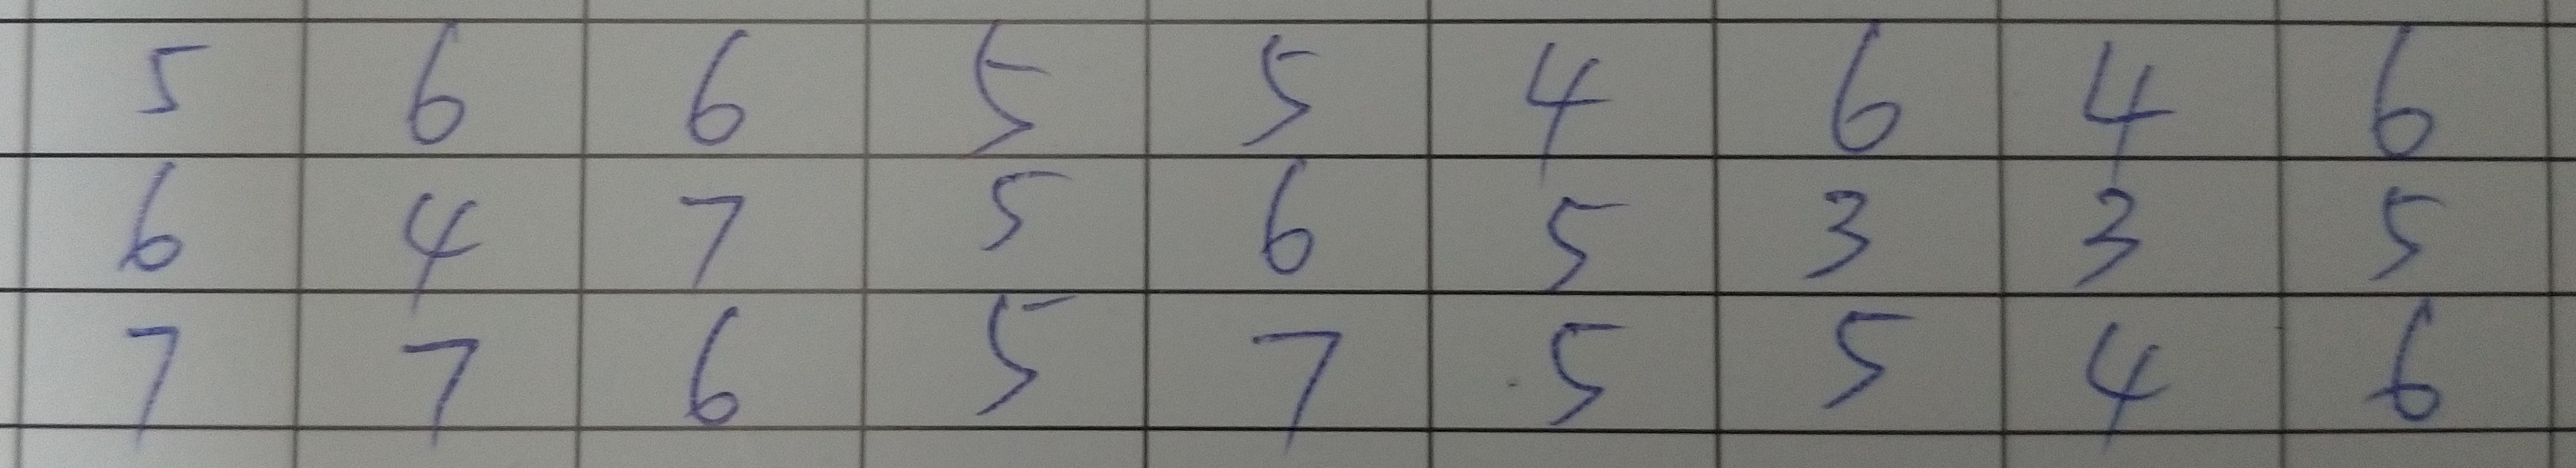 5 6 6 5 5 4 6 4 6
6 4 7 5 6 5 3 3 5
7 7 6 5 7 5 5 4 6